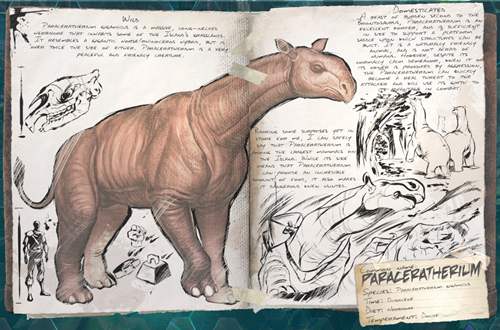 Wild
Paraceratherium gigamicus is a massive, long-necked
herbivore that inhabits some of the Island's grasslands.
It resembles a gigantic horse/rhinoceros hybrid, but is
over twice the size of either. Paraceratherium is a very
peaceful and friendly creature.
Domesticated
A beast of burden second to the
Brontosaurus, Paraceratherium is an
excellent pack
in size to support a platform
saddle upon which structures can be
built. It is a naturally friendly
animal, and is not afraid of
humans. However, despite its
normally calm demeanor, when it or
its owner is provoked by aggression,
the Paraceratherium can quickly
become a real threat to the
attacker and will use its
in combat.
Barring some surprises yet in
store for me, I can safely
say that Paraceratherium is
among the largest mammals on
the Island. While its size
means that Paraceratherium
can provide an incredible
amount of food, it also makes
it dangerous when hunted.
PARACERATHERIUM
Species: Paraceratherium gigamicus
Time: Oligocene
Diet: Herbivore
Temperament: Docile